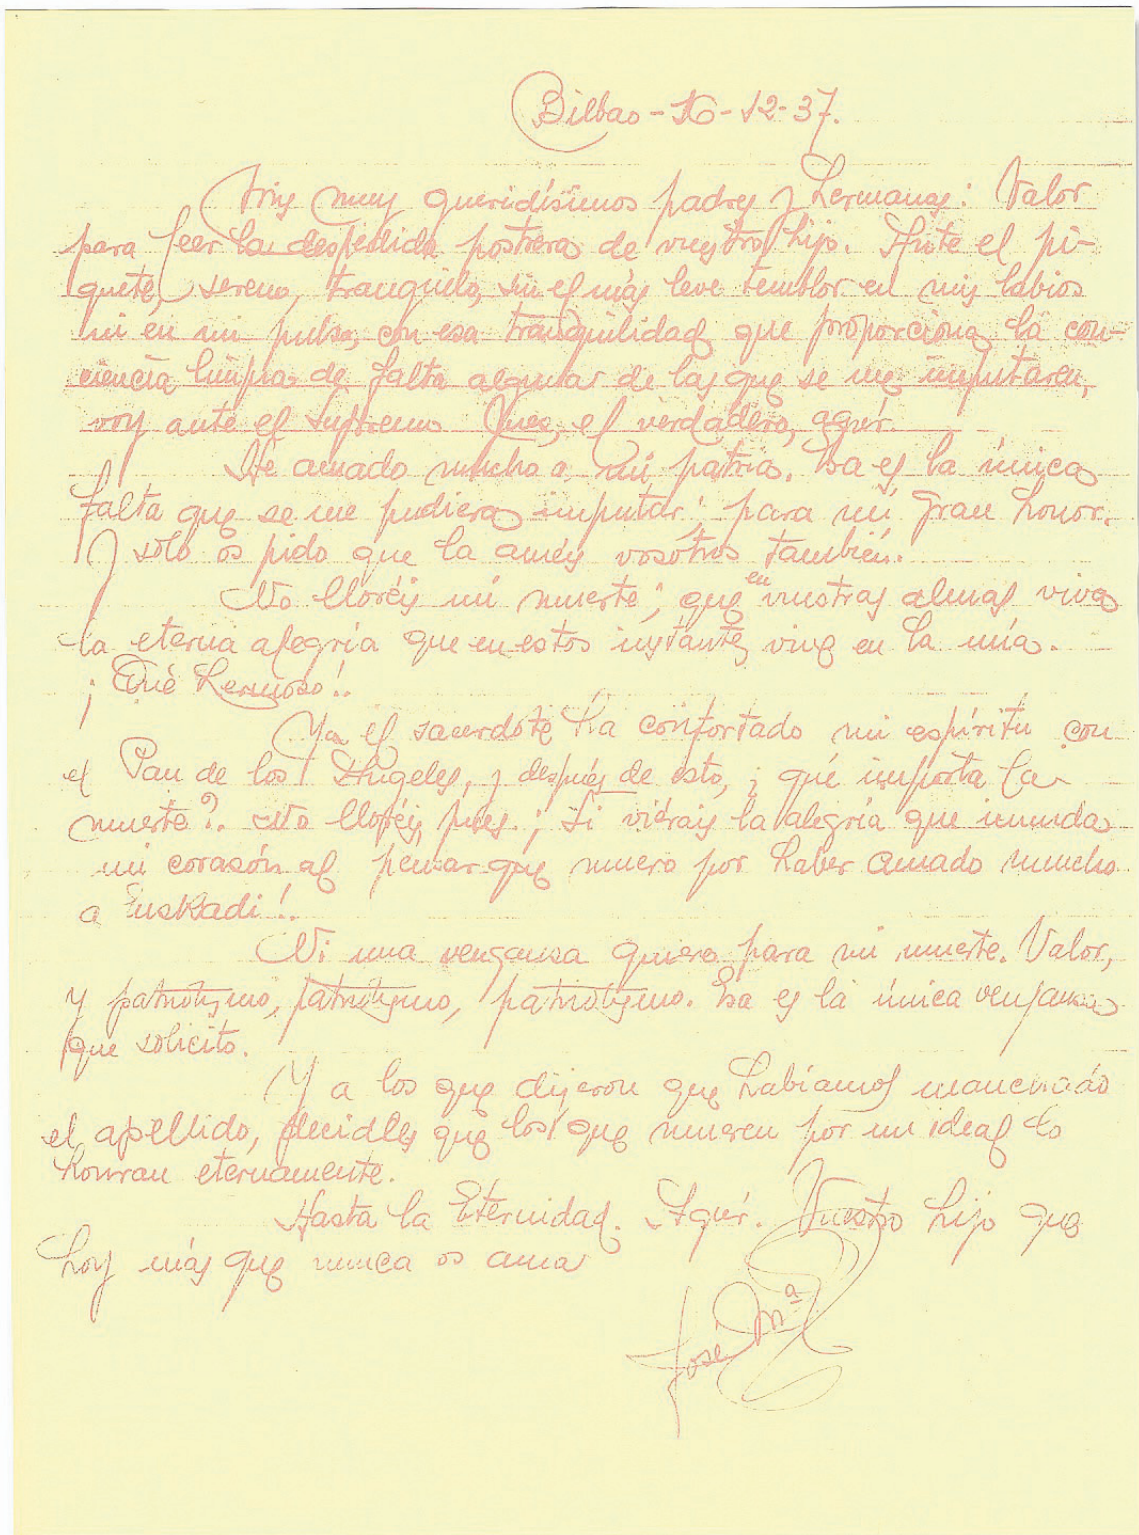 Bilbao - 16 - 12 - 37.
Mis muy queridísimos padres y hermanas: Valor
para leer la despedida postrera de vuestro hijo. Ante el pi-
quete, sereno, tranquilo, sin el más leve temblor en mis labios
ni en mi pulso, con esa tranquilidad que proporciona la con-
ciencia limpia de falta alguna de las que se me imputaren,
voy ante el Supremo Juez, el verdadero, agur.
He amado mucho a mi patria. Esa es la única
falta que se me pudiera imputar; para mí gran honor.
Y sólo os pido que la améis vosotros también.
No lloréis mi muerte; que en vuestras almas viva
la eterna alegría que en estos instantes vive en la mía.
¡Qué hermoso!.
Ya el sacerdote ha confortado mi espíritu con
el Pan de los Angeles, y después de esto, ¿qué importa la
muerte?. No lloréis, pues. ¡Si viérais la alegría que inunda
mi corazón al pensar que muero por haber amado mucho
a Euskadi!.
Ni una venganza quiero para mi muerte. Valor,
y patriotismo, patriotismo, patriotismo. Esa es la única venganza
que solicito.
Y a los que dijeron que habíamos manchado
el apellido, decidles que los que mueren por un ideal lo
honran eternamente.
Hasta la Eternidad. Agur. Vuestro hijo que
hoy más que nunca os ama
José Mª